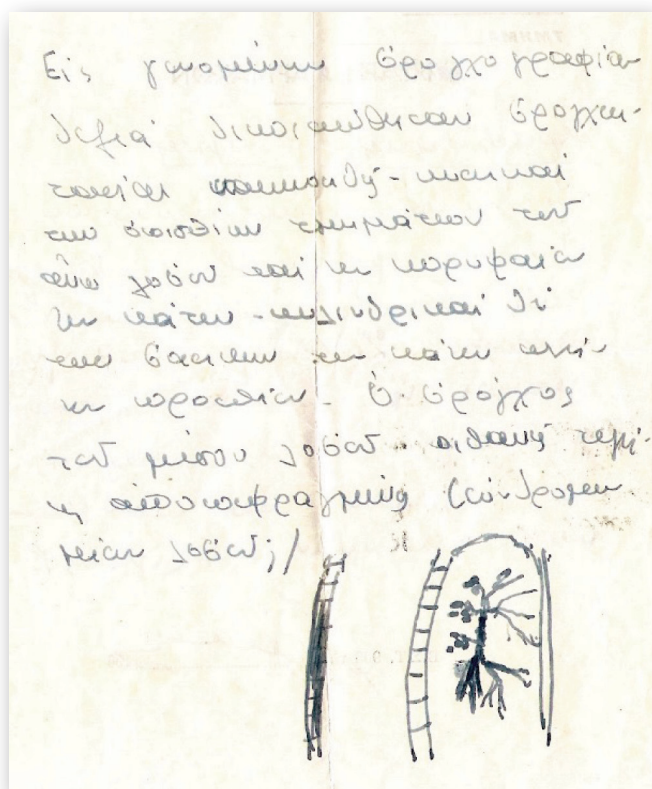 Εἰς γενομένην βρογχογραφίαν
δεξιά διεπιστώθησαν βρογχε-
κτασίαι - κυστικαί
τῶν ὀπισθίων τμημάτων τοῦ
ἄνω λοβοῦ καί τῆς κορυφαία
τῆς κάτω - κυλινδρικαί δέ
τῶν βασικῶν τοῦ κάτω πλήν
τῆς προσθίου - Ὁ βρόγχος
τοῦ μέσου λοβοῦ - πιθανῶς
ἀποπεφραγμένος (σύνδρομον
μέσου λοβοῦ;)